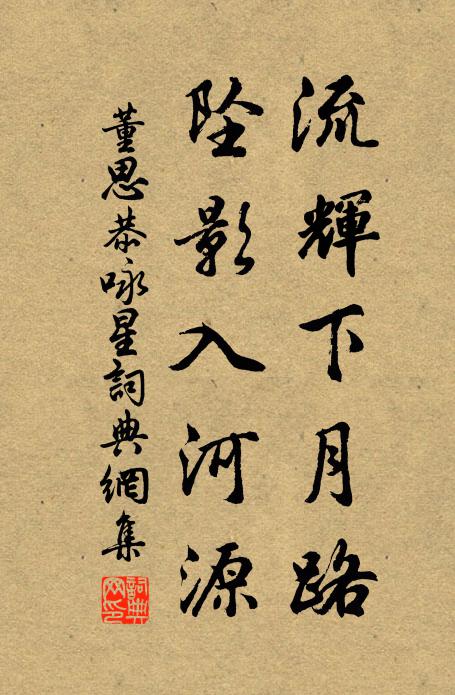 流輝下月路
墜影入河源
董思恭咏星詞典網集
詞典網印